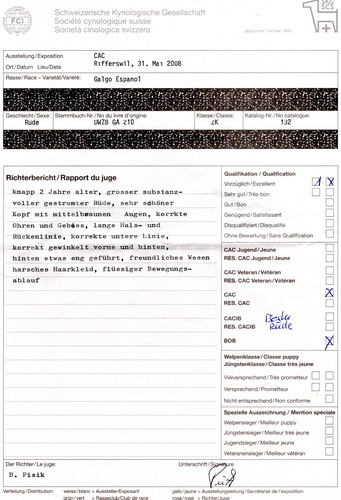 FCI
Schweizerische Kynologische Gesellschaft
Société cynologique suisse
Società cinologica svizzera
SCS
SKG
Ausstellung/Exposition CAC
Ort/Datum Lieu/Date Rifferswil, 31. Mai 2008
Rasse/Race – Varietät/Variété: Galgo Espanol
Geschlecht/Sexe: Stammbuch-Nr/No du livre d'origine: Klasse/Classe: Katalog-No/No catalogue:
Rüde DWZB GA 210 ZK 132
Richterbericht/Rapport du juge
knapp 2 Jahre alter, grosser substanz-
voller gestromter Rüde, sehr schöner
Kopf mit mittelbraunen Augen, korrkte
Ohren und Gebiss, lange Hals- und
Rückenlinie, korrekte untere Linie,
korrekt gewinkelt vorne und hinten,
hinten etwas eng geführt, freundliches Wesen
harsches Haarkleid, flüssiger Bewegungs-
ablauf
Qualifikation/Qualification
Vorzüglich/Excellent 1 X
Sehr gut/Très bon
Gut/Bon
Genügend/Satisfaisant
Disqualifiziert/Disqualifié
Ohne Bewertung/Sans Qualification
CAC Jugend/Jeune
RES. CAC Jugend/Jeune
CAC Veteran/Vétéran
RES. CAC Veteran/Vétéran
CAC X
RES. CAC
CACIB Bester
RES. CACIB Rüde
BOB X
Welpenklasse/Classe puppy
Jüngstenklasse/Classe très jeune
Vielversprechend/Très prometteur
Versprechend/Prometteur
Nicht entsprechend/Non conforme
Spezielle Auszeichnung/Mention spéciale
Welpensieger/Meilleur puppy
Jüngstensieger/Meilleur très jeune
Jugendsieger/Meilleur jeune
Veteranensieger/Meilleur vétéran
Der Richter/Le juge: Unterschrift/Signature
B. Pisik
Verteilung/Distribution: weiss/blanc = Aussteller/Exposant gelb/jaune = Ausstellungsleitung/Secrétariat de l'exposition
grün/vert = Rasseclub/Club de race rosa/rose = Richter/Juge